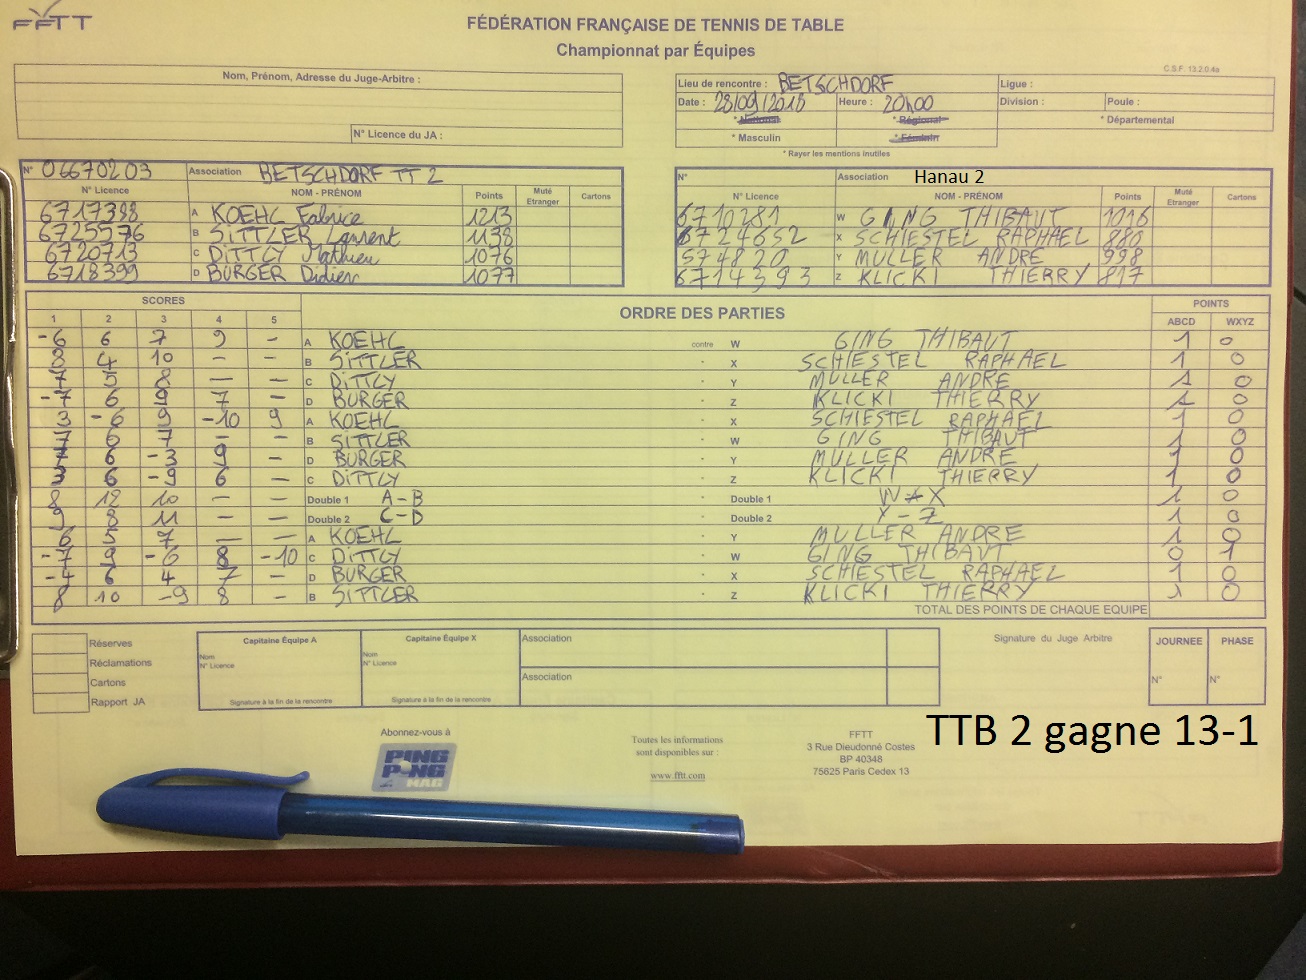 FFTT
FÉDÉRATION FRANÇAISE DE TENNIS DE TABLE
Championnat par Équipes
C.S.F. 13.2.0.4a
Nom, Prénom, Adresse du Juge-Arbitre :
N° Licence du JA :
Lieu de rencontre : BETSCHDORF Ligue :
Date : 28/09/2018 Heure : 20h00 Division : Poule :
* National * Régional * Départemental
* Masculin * Féminin
* Rayer les mentions inutiles
N° 06670203 Association BETSCHDORF TT 2
N° Licence NOM - PRÉNOM Points Muté Etranger Cartons
6717398 A KOEHL Fabrice 1213
6725576 B SITTLER Laurent 1138
6720713 C DITTLY Mathieu 1076
6718399 D BURGER Didier 1077
N° Association Hanau 2
N° Licence NOM - PRÉNOM Points Muté Etranger Cartons
6710281 W GING THIBAUT 1016
6724652 X SCHIESTEL RAPHAEL 880
574820 Y MULLER ANDRE 998
6714393 Z KLICKI THIERRY 817
SCORES ORDRE DES PARTIES POINTS
1 2 3 4 5 ABCD WXYZ
-6 6 7 9 - A KOEHL contre W GING THIBAUT 1 0
8 4 10 - - B SITTLER " X SCHIESTEL RAPHAEL 1 0
7 5 8 - - C DITTLY " Y MULLER ANDRE 1 0
-7 6 9 7 - D BURGER " Z KLICKI THIERRY 1 0
3 -6 9 -10 9 A KOEHL " X SCHIESTEL RAPHAEL 1 0
7 6 7 - - B SITTLER " W GING THIBAUT 1 0
7 6 -3 9 - D BURGER " Y MULLER ANDRE 1 0
3 6 -9 6 - C DITTLY " Z KLICKI THIERRY 1 0
8 12 10 - - Double 1 A-B " Double 1 W-X 1 0
9 8 11 - - Double 2 C-D " Double 2 Y-Z 1 0
6 5 7 - - A KOEHL " Y MULLER ANDRE 1 0
-7 9 -6 8 -10 C DITTLY " W GING THIBAUT 0 1
-4 6 4 7 - D BURGER " X SCHIESTEL RAPHAEL 1 0
8 10 -9 8 - B SITTLER " Z KLICKI THIERRY 1 0
TOTAL DES POINTS DE CHAQUE EQUIPE
Réserves
Réclamations
Cartons
Rapport JA
Capitaine Équipe A
Nom
N° Licence
Signature à la fin de la rencontre
Capitaine Équipe X
Nom
N° Licence
Signature à la fin de la rencontre
Association
Association
Signature du Juge Arbitre
JOURNEE PHASE
N° N°
TTB 2 gagne 13-1
Abonnez-vous à
PING PONG MAG
Toutes les informations
sont disponibles sur :
www.fftt.com
FFTT
3 Rue Dieudonné Costes
BP 40348
75625 Paris Cedex 13